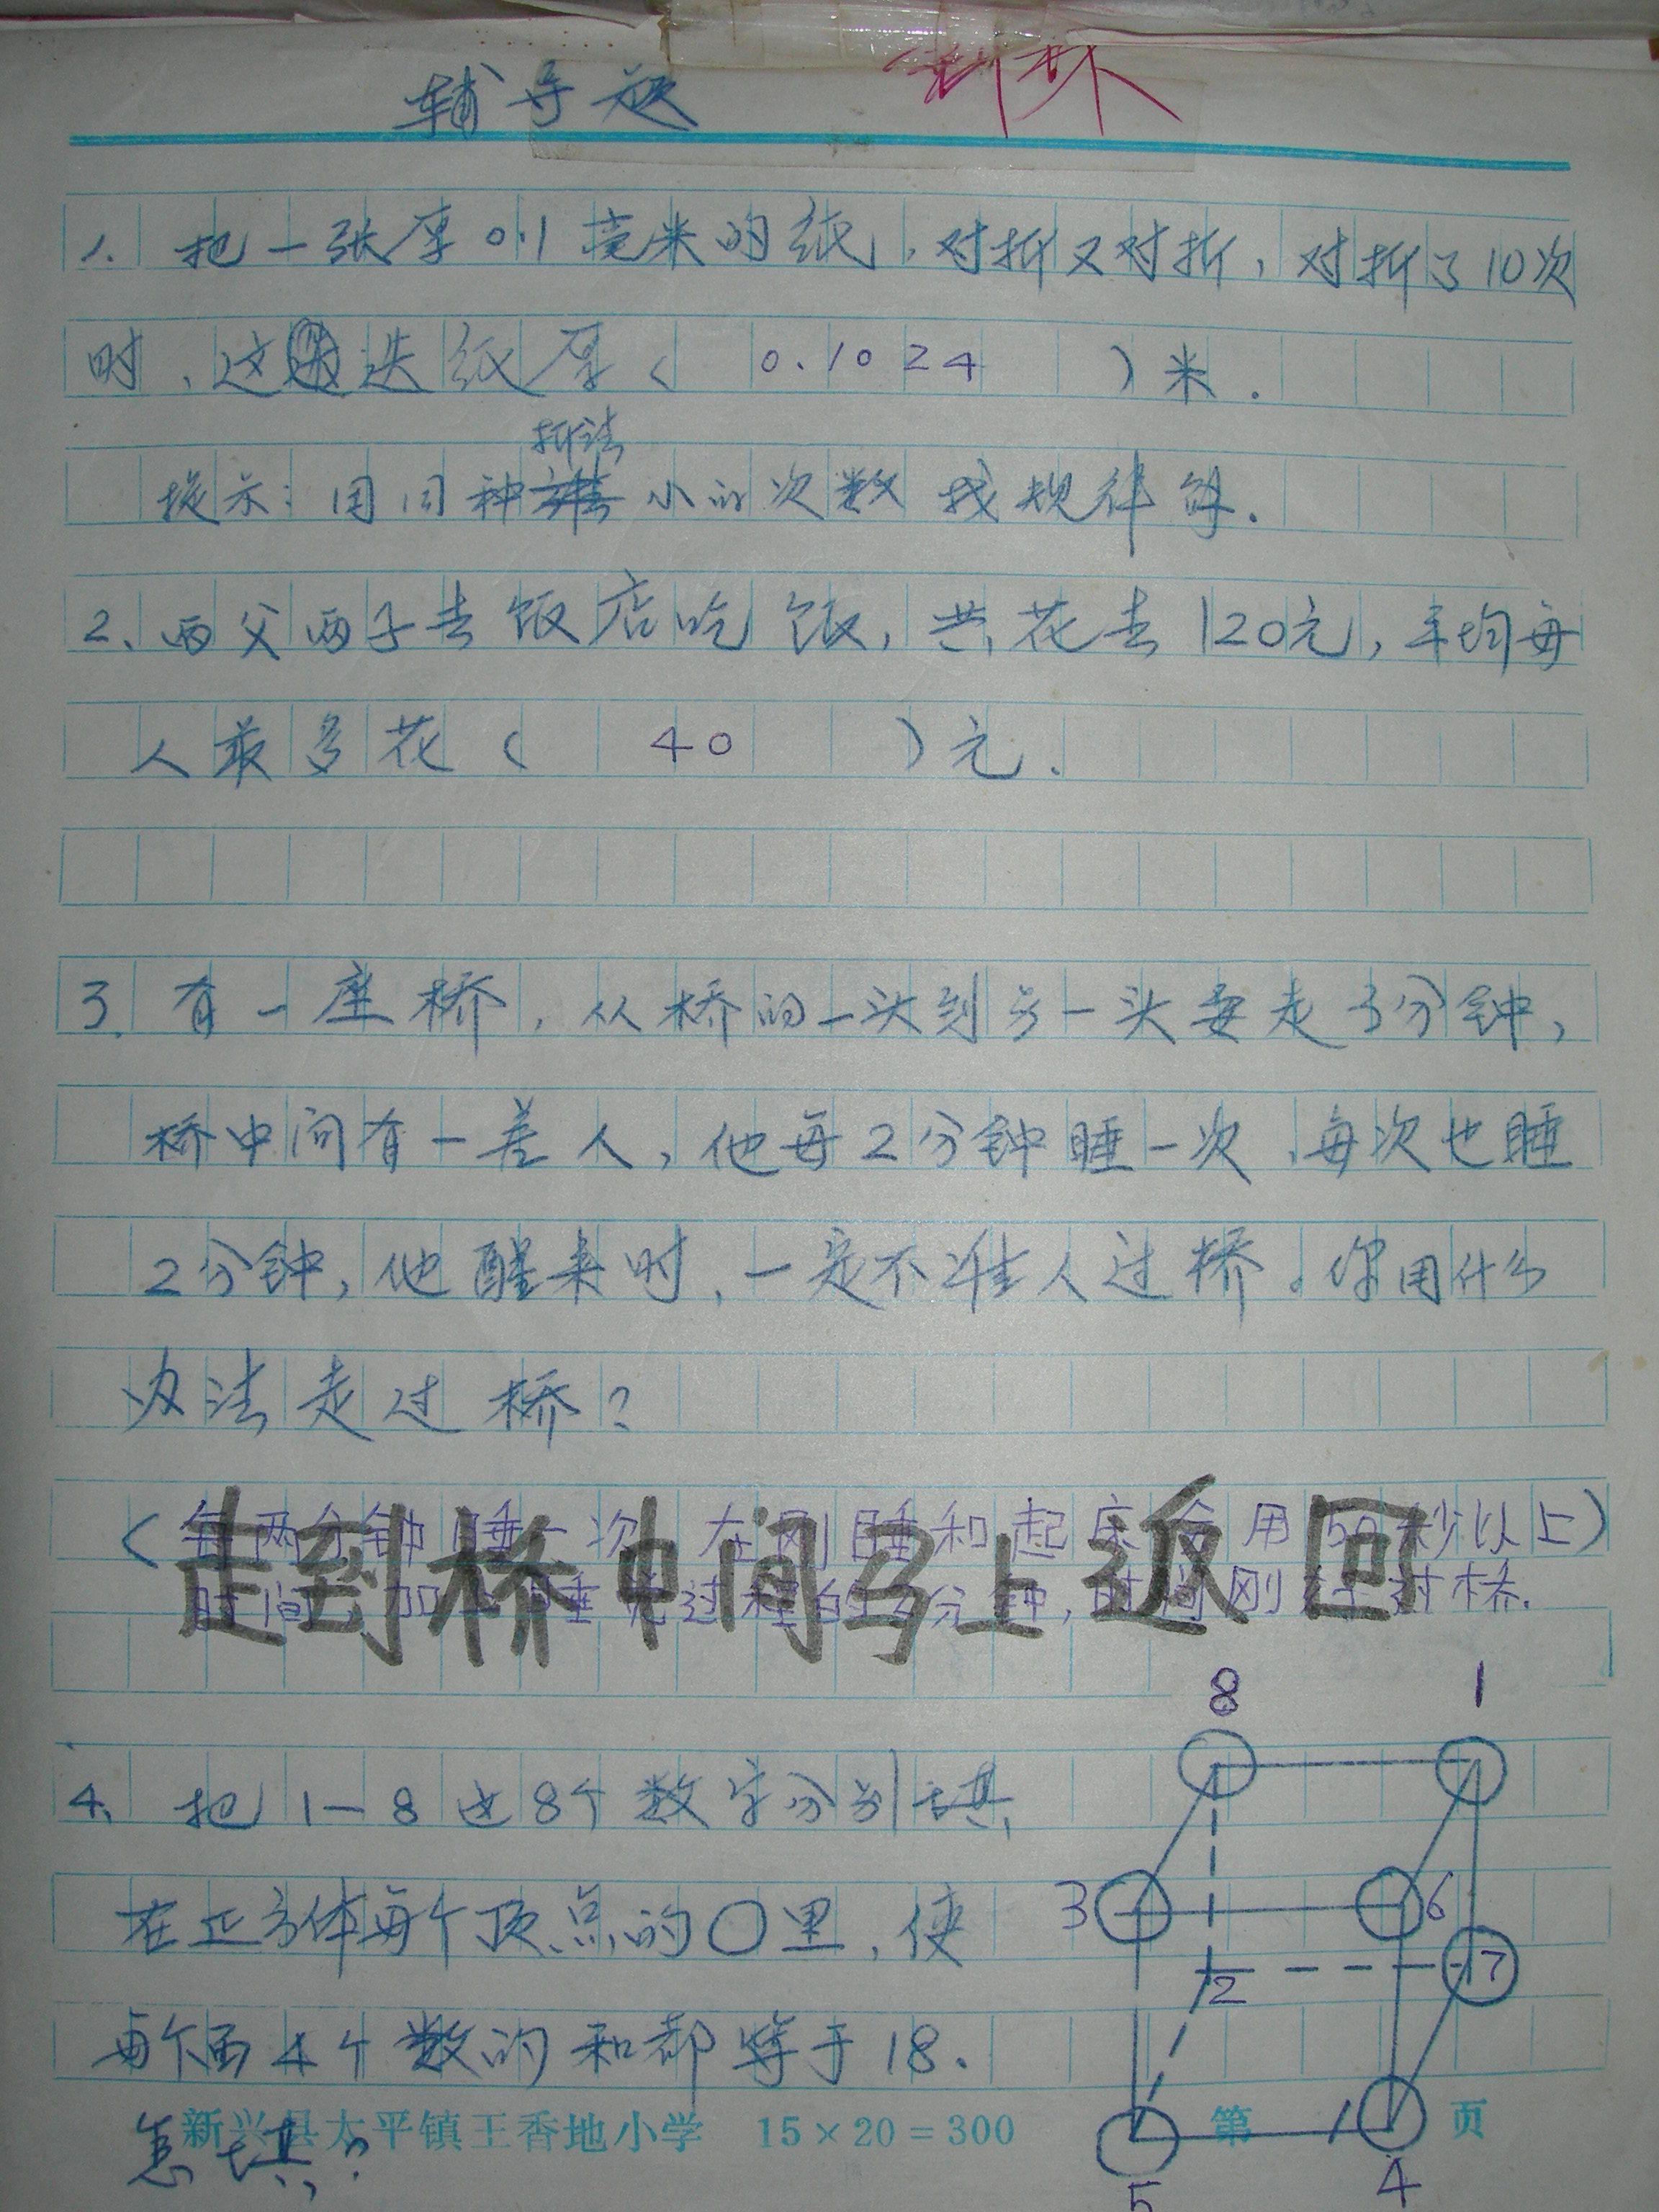 辅导题
1. 把一张厚0.1毫米的纸,对折又对折,对折了10次
时,这迭纸厚( 0.1024 )米.
折法
提示:用同种小的次数找规律解.
2、两父两子去饭店吃饭,共花去120元,平均每
人最多花( 40 )元.
3. 有一座桥,从桥的一头到另一头要走3分钟,
桥中间有一差人,他每2分钟睡一次,每次也睡
2分钟,他醒来时,一定不准人过桥。你用什么
办法走过桥?
(每两分钟睡一次 在刚睡和起床 用50秒以上)
时间 睡 过程的2分钟,时间刚 过桥.
走到桥中间马上返回
8 1
4、把1—8这8个数字分别填
在正方体每个顶点的○里,使
3 6
2 7
每个面4个数的和都等于18.
新兴县太平镇王香地小学 15×20=300 第 页
怎填?
5 4